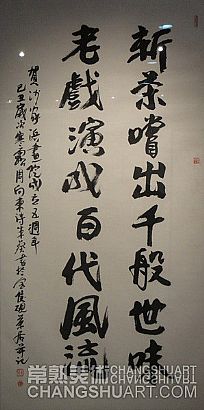 新茶嚐出千般世味
老戲演成百代風流
賀沙家浜畫院成立五週年
己丑歲次寒露月向東詩朱癸
常熟美術 常熟美術
CHANGSHUART.COM CHANGSHUART.COM